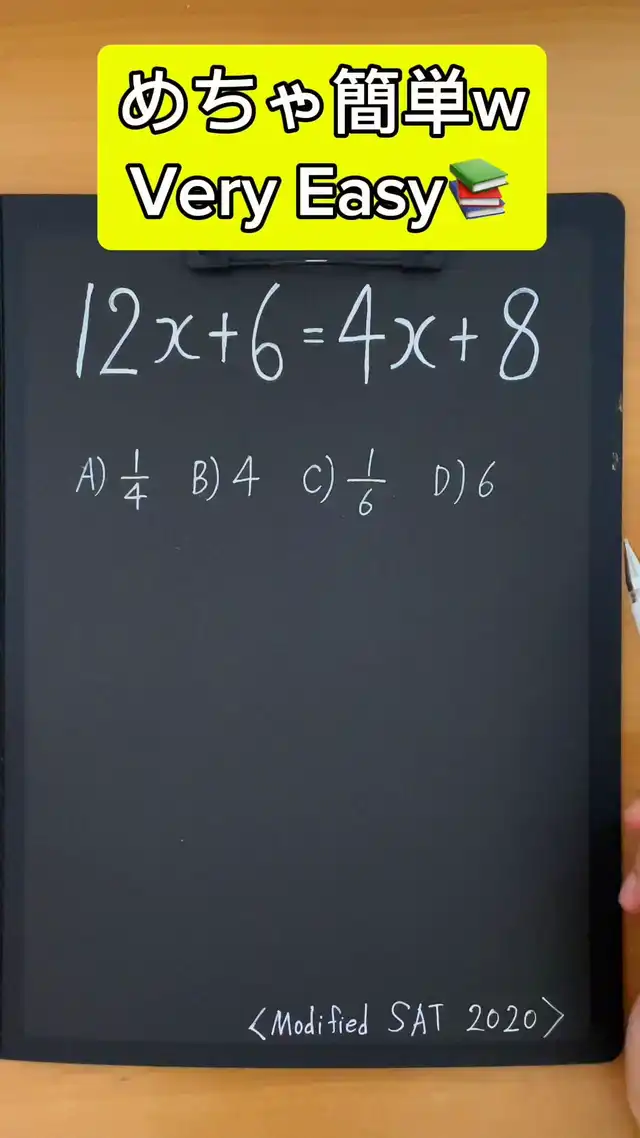 めちゃ簡単w
Very Easy📚
12x+6=4x+8
A) 1/4 B) 4 C) 1/6 D) 6
<Modified SAT 2020>